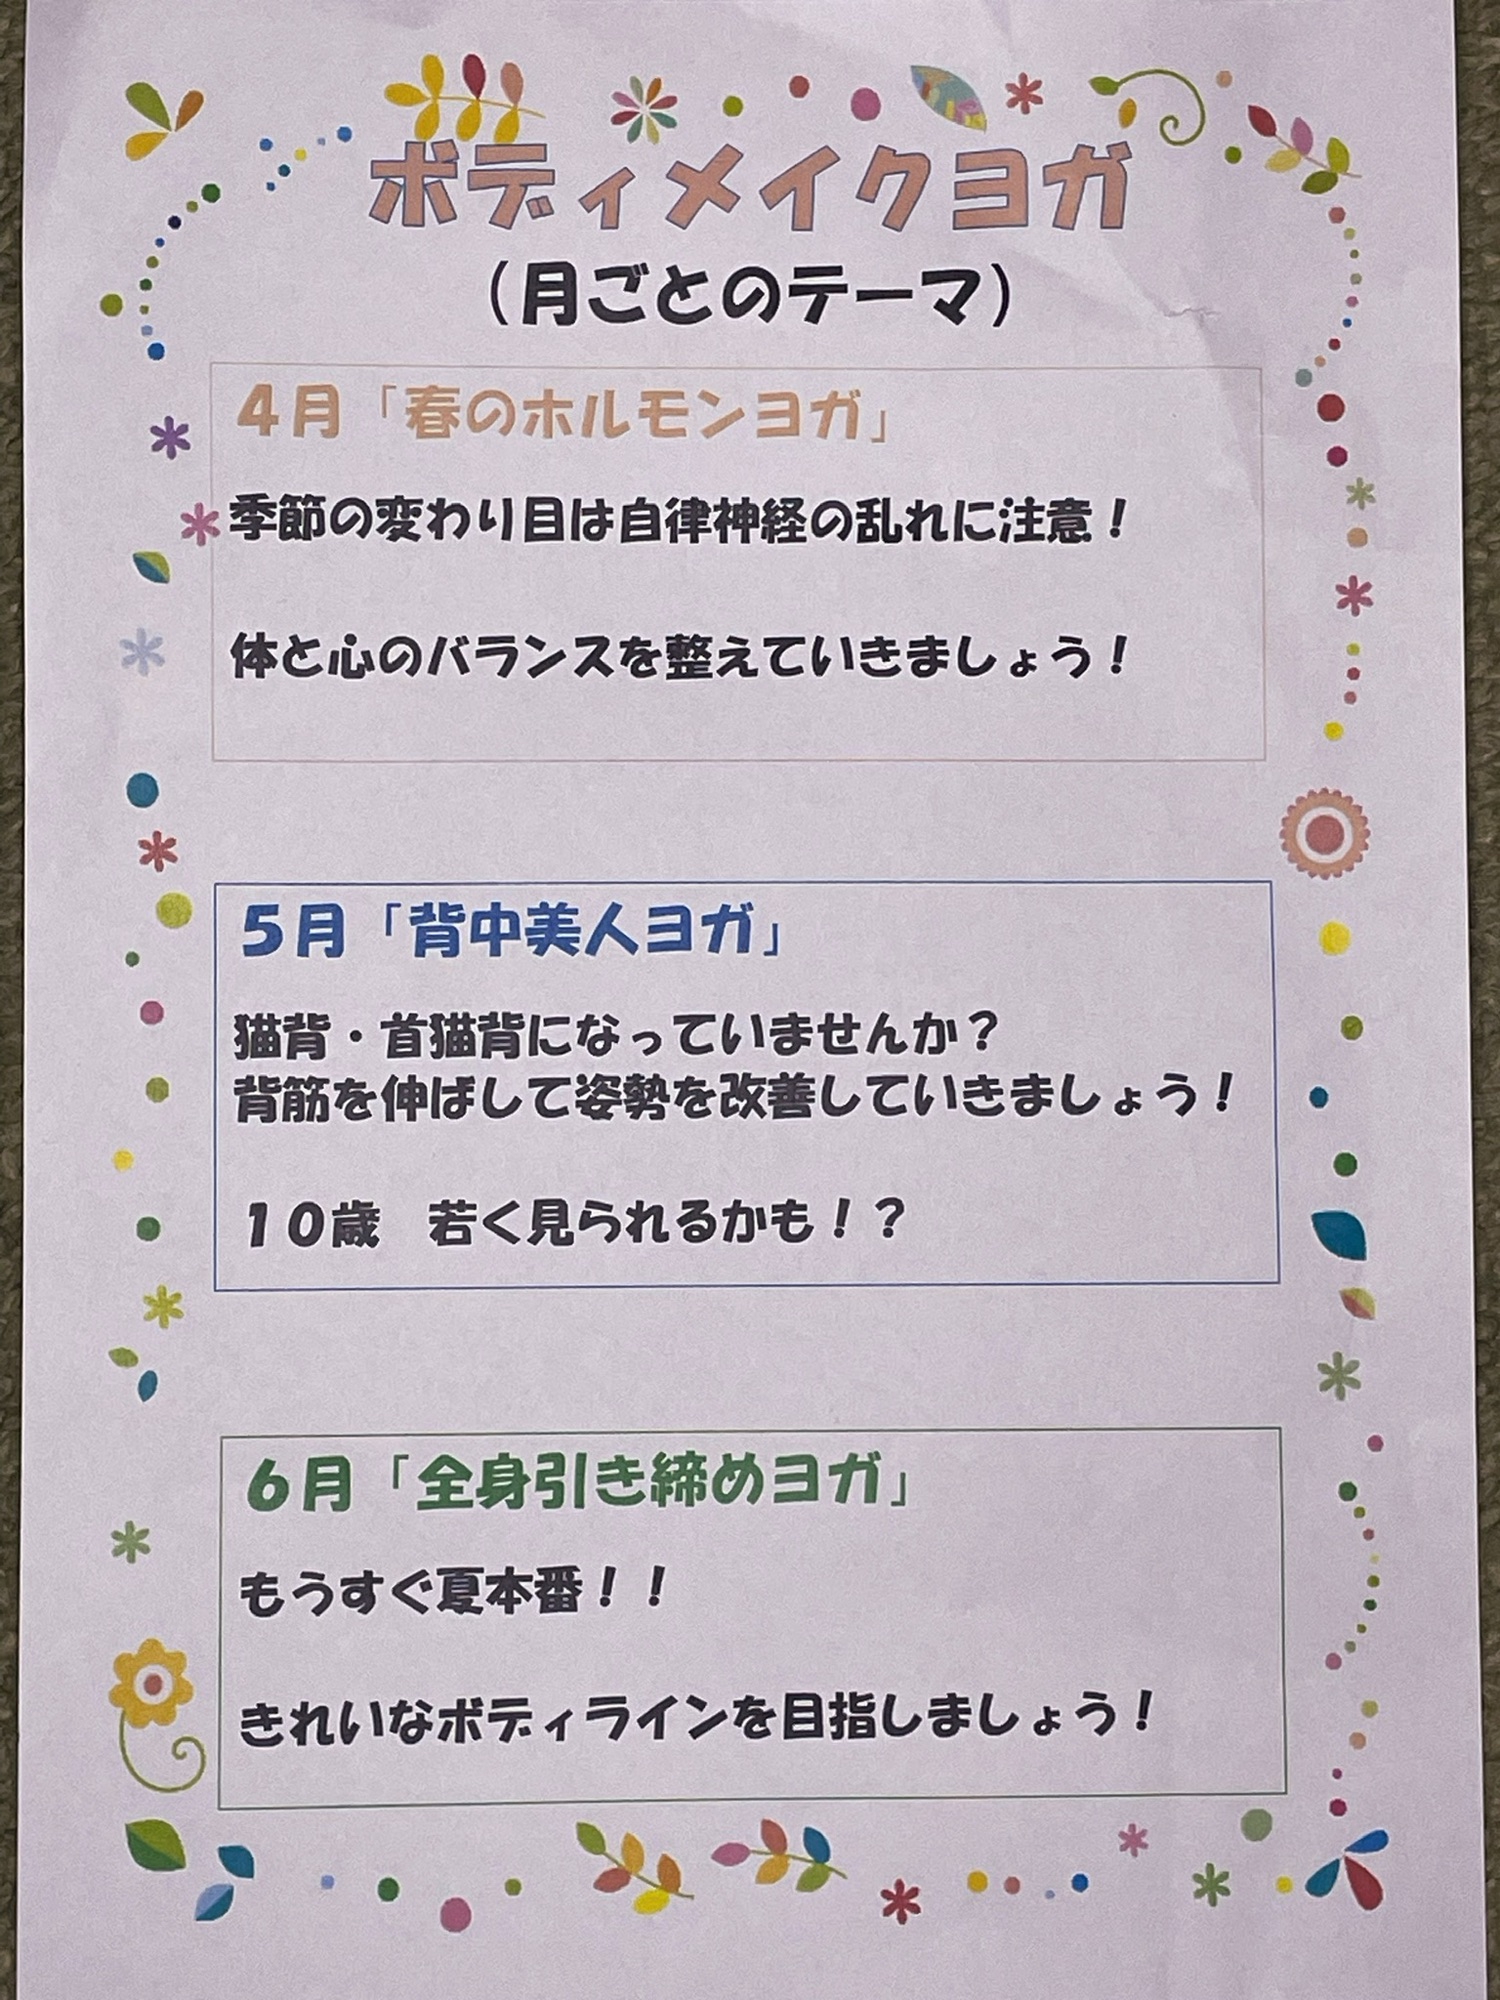 ボディメイクヨガ
（月ごとのテーマ）
４月「春のホルモンヨガ」
季節の変わり目は自律神経の乱れに注意！
体と心のバランスを整えていきましょう！
５月「背中美人ヨガ」
猫背・首猫背になっていませんか？
背筋を伸ばして姿勢を改善していきましょう！
１０歳　若く見られるかも！？
６月「全身引き締めヨガ」
もうすぐ夏本番！！
きれいなボディラインを目指しましょう！